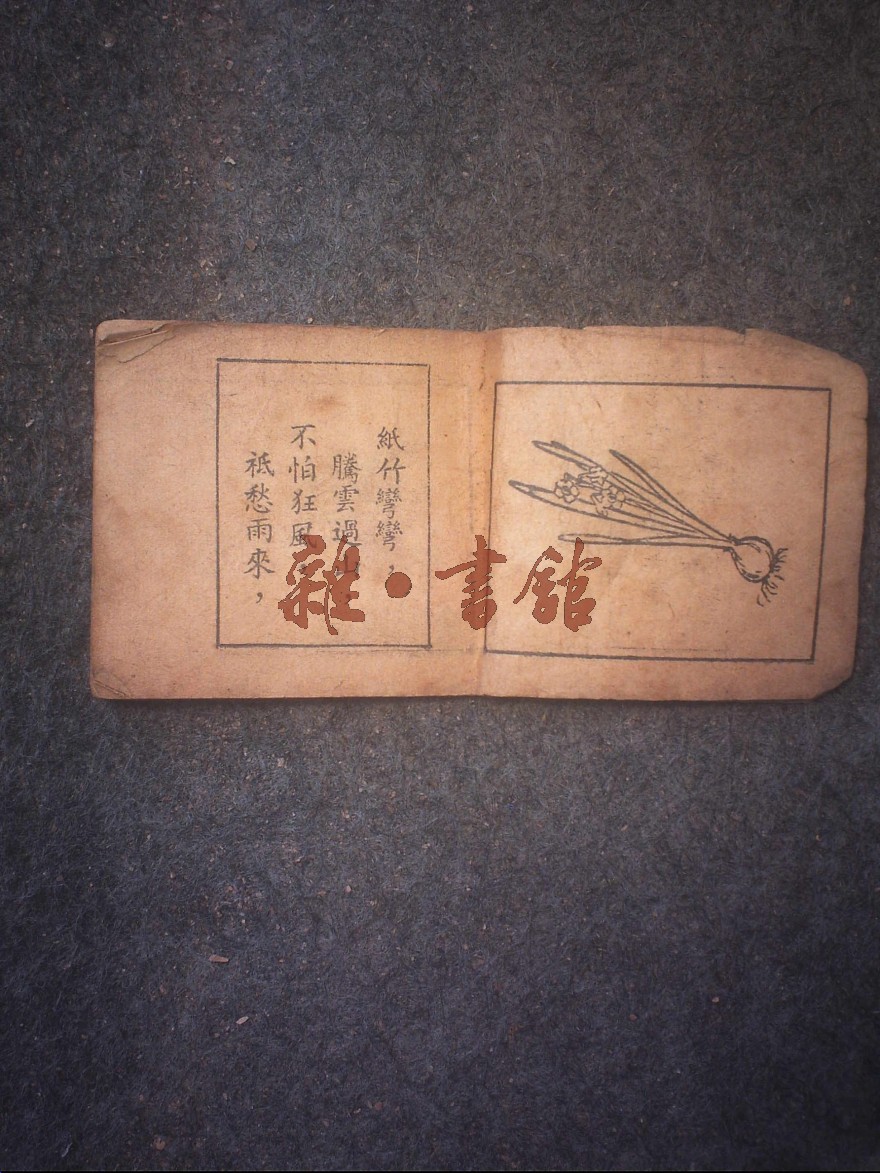 紙竹彎彎，
騰雲過
不怕狂風，
祇愁雨來，
雜·書館